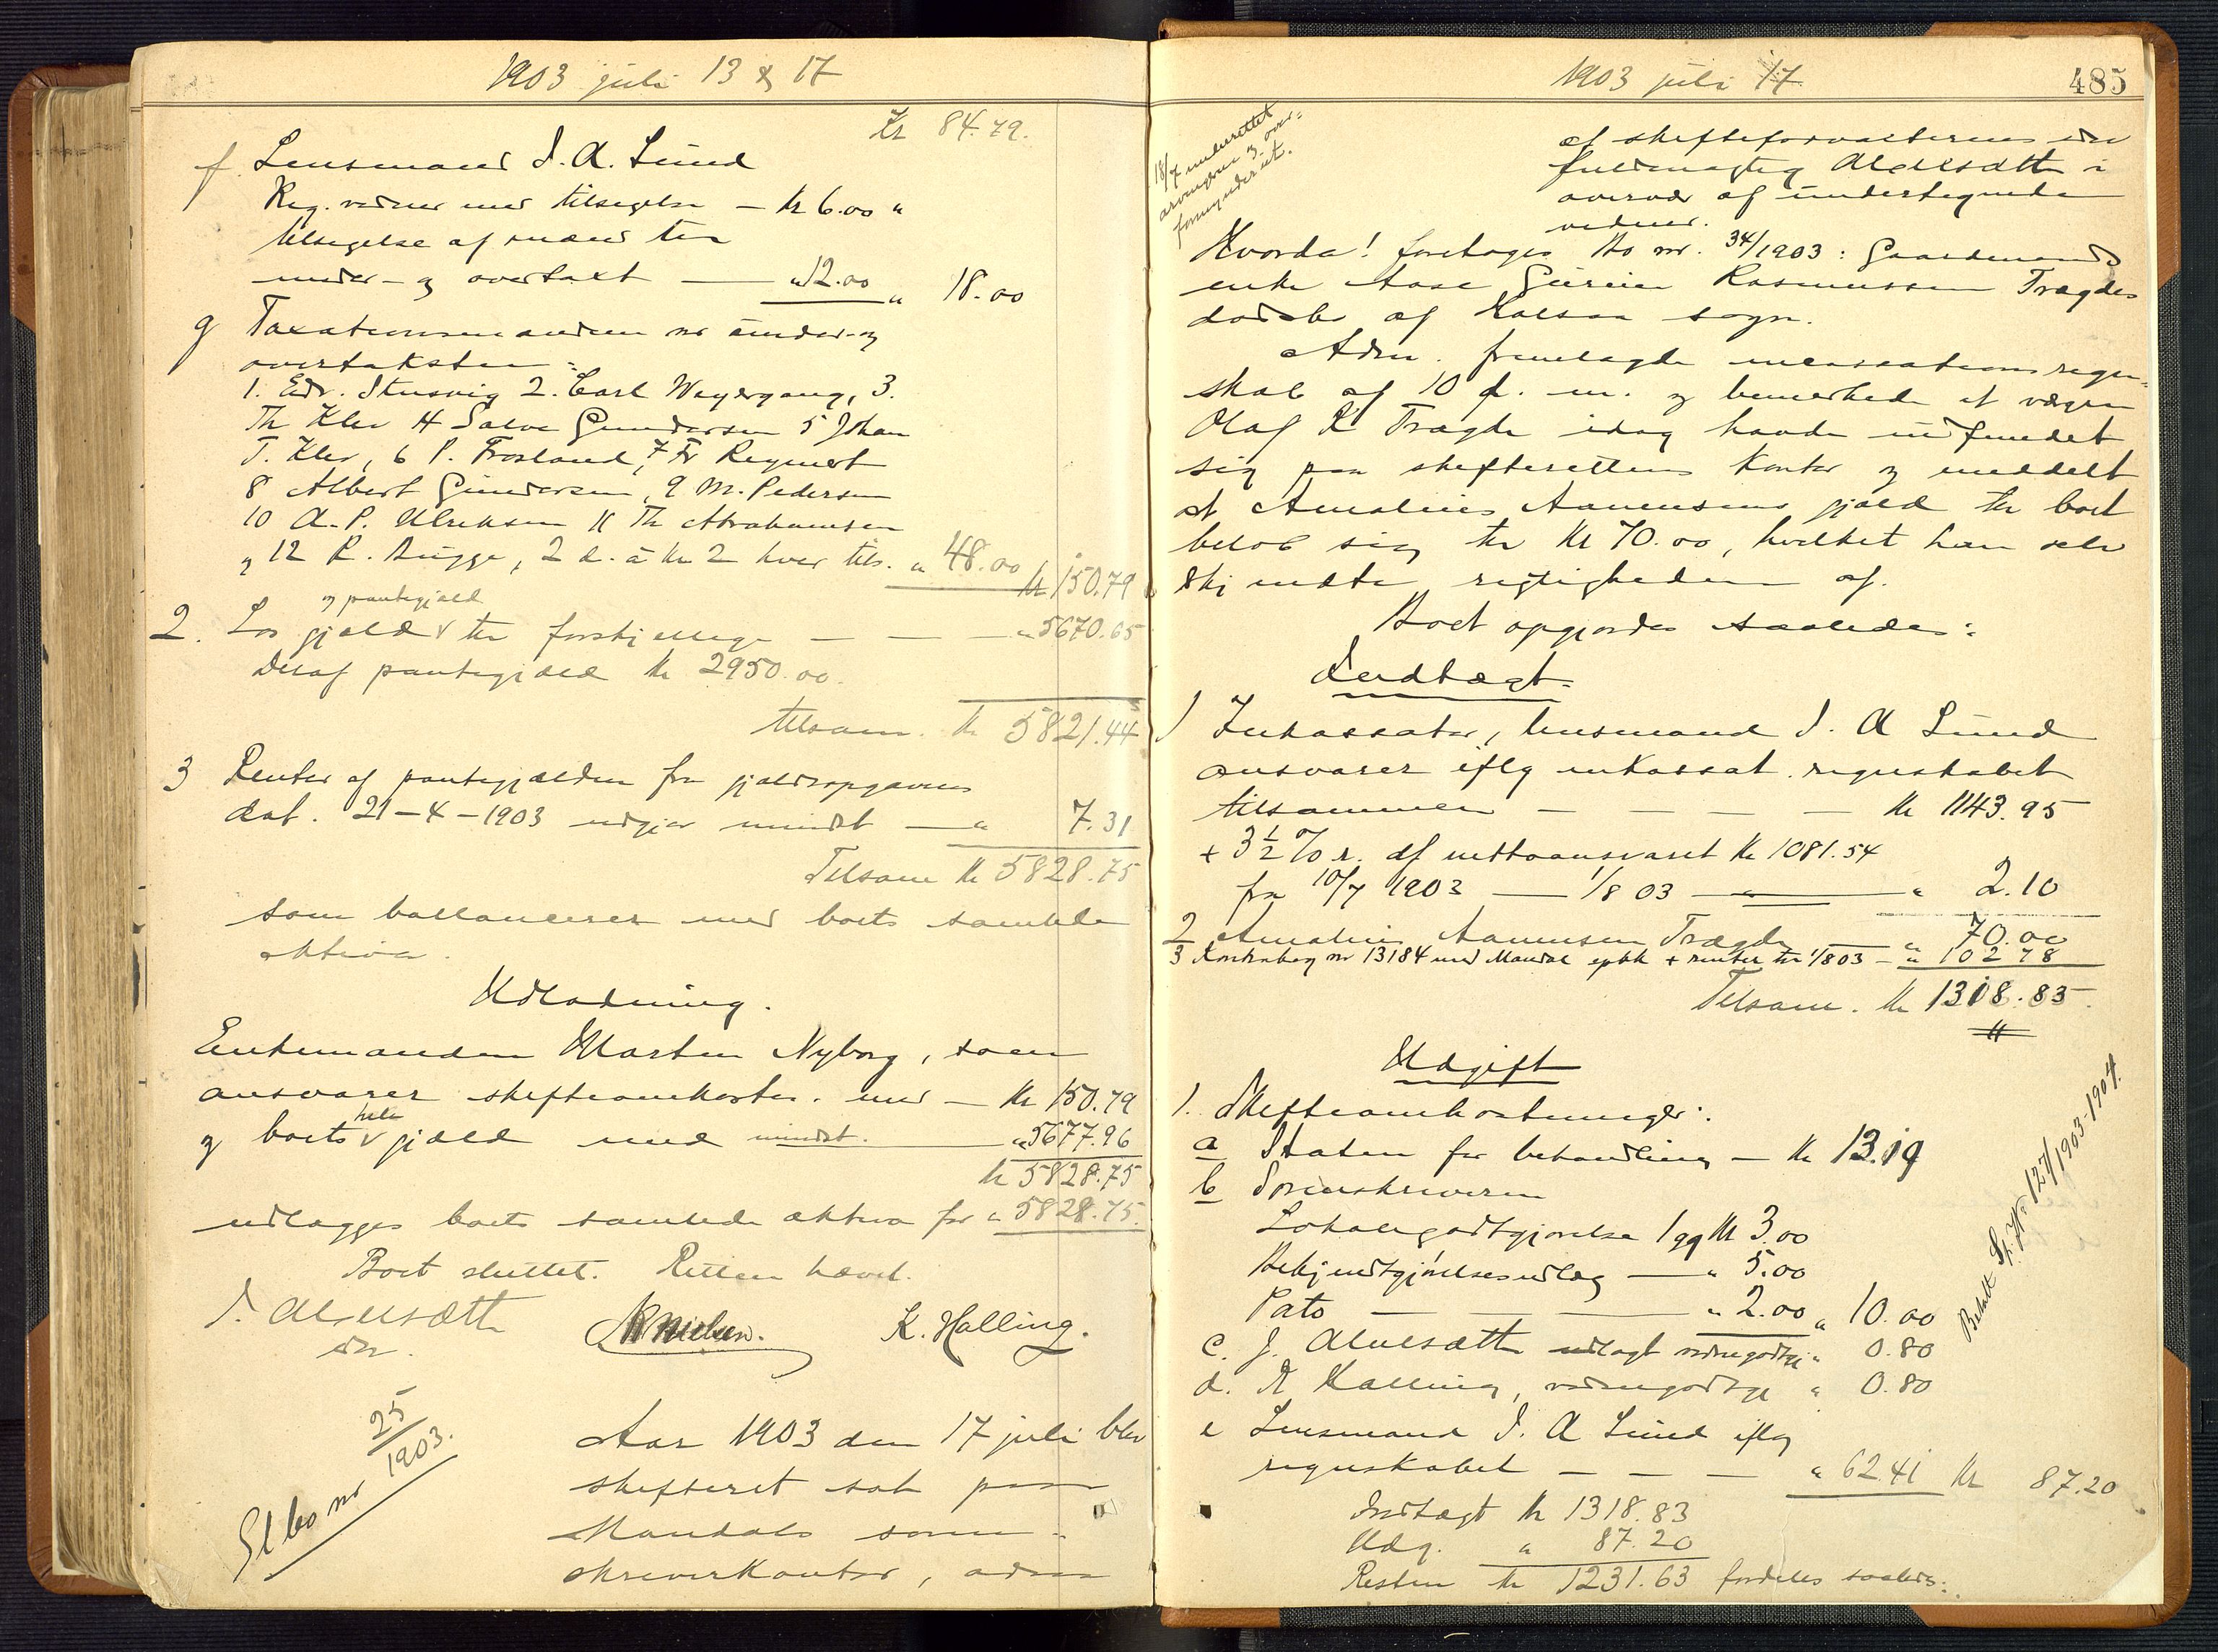 1903 juli 13 & 17
Kr 84.79.
f. Lensmand S. A. Lund
Reg. vidner med tilsigelse – kr 6.00 "
tilsigelse af mænd til
under- og overtaxt — " 12.00 " 18.00
g Taxationsmændene ved under- og
overtaksten:
1. Edv. Stusvig 2. Carl Weyergang, 3.
Th Klev 4 Salve Gundersen 5 Johan
T. Klev, 6 P. Frosland, 7 Fr Regnert
8 Albert Gundersen, 9 M. Pedersen
10 A. P. Ulriksen 11 Th Abrahamsen
og 12 R. Bugge, 2 d. à kr 2 hver tils. " 48.00 kr 150.79
og pantegjæld
2. Løs gjæld v til forskjellige — — — " 5670.65
Deraf pantegjæld kr 2950.00.
tilsam. kr 5821.44
3 Renter af pantegjælden fra gjældsopgavens
dat. 21-4-1903 udgjør mindst — " 7.31
Tilsam kr 5828.75
som ballancerer med boets samlede
aktiva.
Udlodning.
Enkemanden Morten Nyborg, som
ansvarer skifteomkostn. med — kr 150.79
hele
og boets v gjæld med mindst. — " 5677.96
kr 5828.75
udlægges boets samlede aktiva for " 5828.75.
Boet sluttet. Retten hævet.
J. Alvelsætth
edv.
Nielsen. K. Halling.
Sl bo nr 25/1903.
Aar 1903 den 17 juli blev
skifteret sat paa
Mandals soren-
skriverkontor, adm
1903 juli 17
485
18/7 underettet
arvingerne og over-
formynderiet.
af skifteforvalterens edv
fuldmægtig Alvelsætth i
overvær af undertegnede
vidner.
Hvorda! foretoges bo nr. 34/1903: Gaardmands
enke Aase Gurine Rasmussen Trægdes
dødsbo af Halsaa sogn.
Adm. fremlagde incassations regn-
skab af 10 d. m. og bemerkede at værgen
Olaf K Trægde idag havde indfundet
sig paa skifterettens kontor og meddelt
at Amalies Aanensens gjæld til boet
beløb sig til kr 70.00, hvilket han selv
skjendte rigtigheden af.
Boet opgjordes saaledes:
Indtægt:
1 Inkassator, lensmand S. A Lund
ansvarer iflg inkassat. regnskabet
tilsammen — — — — kr 1143.95
+ 3½ % r. af nettoansvaret kr 1081.54
fra 10/7 1903 — 1/8 03 — " — " 2.10
2 Amalie Aanensen Trægde — " 70.00
3 Kontrabog nr 13184 med Mandal spbk + renter til 1/8 03 – " 102 78
Tilsam. kr 1318.83
Udgift
1. Skifteomkostninger:
a Staten for behandling – kr 13.19
b Sorenskriveren
Lokalegodtgjørelse 1 gg kr 3.00
Bekjendtgjørelsesudlæg — " 5.00
Pato — — " 2.00 " 10.00
c. J. Alvelsætth udlagt vidnegodtgj " 0.80
d. K Halling, vidnegodtgj " 0.80
e Lensmand S. A Lund iflg
regnskabet — — — " 62.41 kr 87.20
Indtægt kr 1318.83
Udg. " 87.20
Resten kr 1231.63 fordeles saaledes:
Betalt Sp. Nr 127/1903-1904.